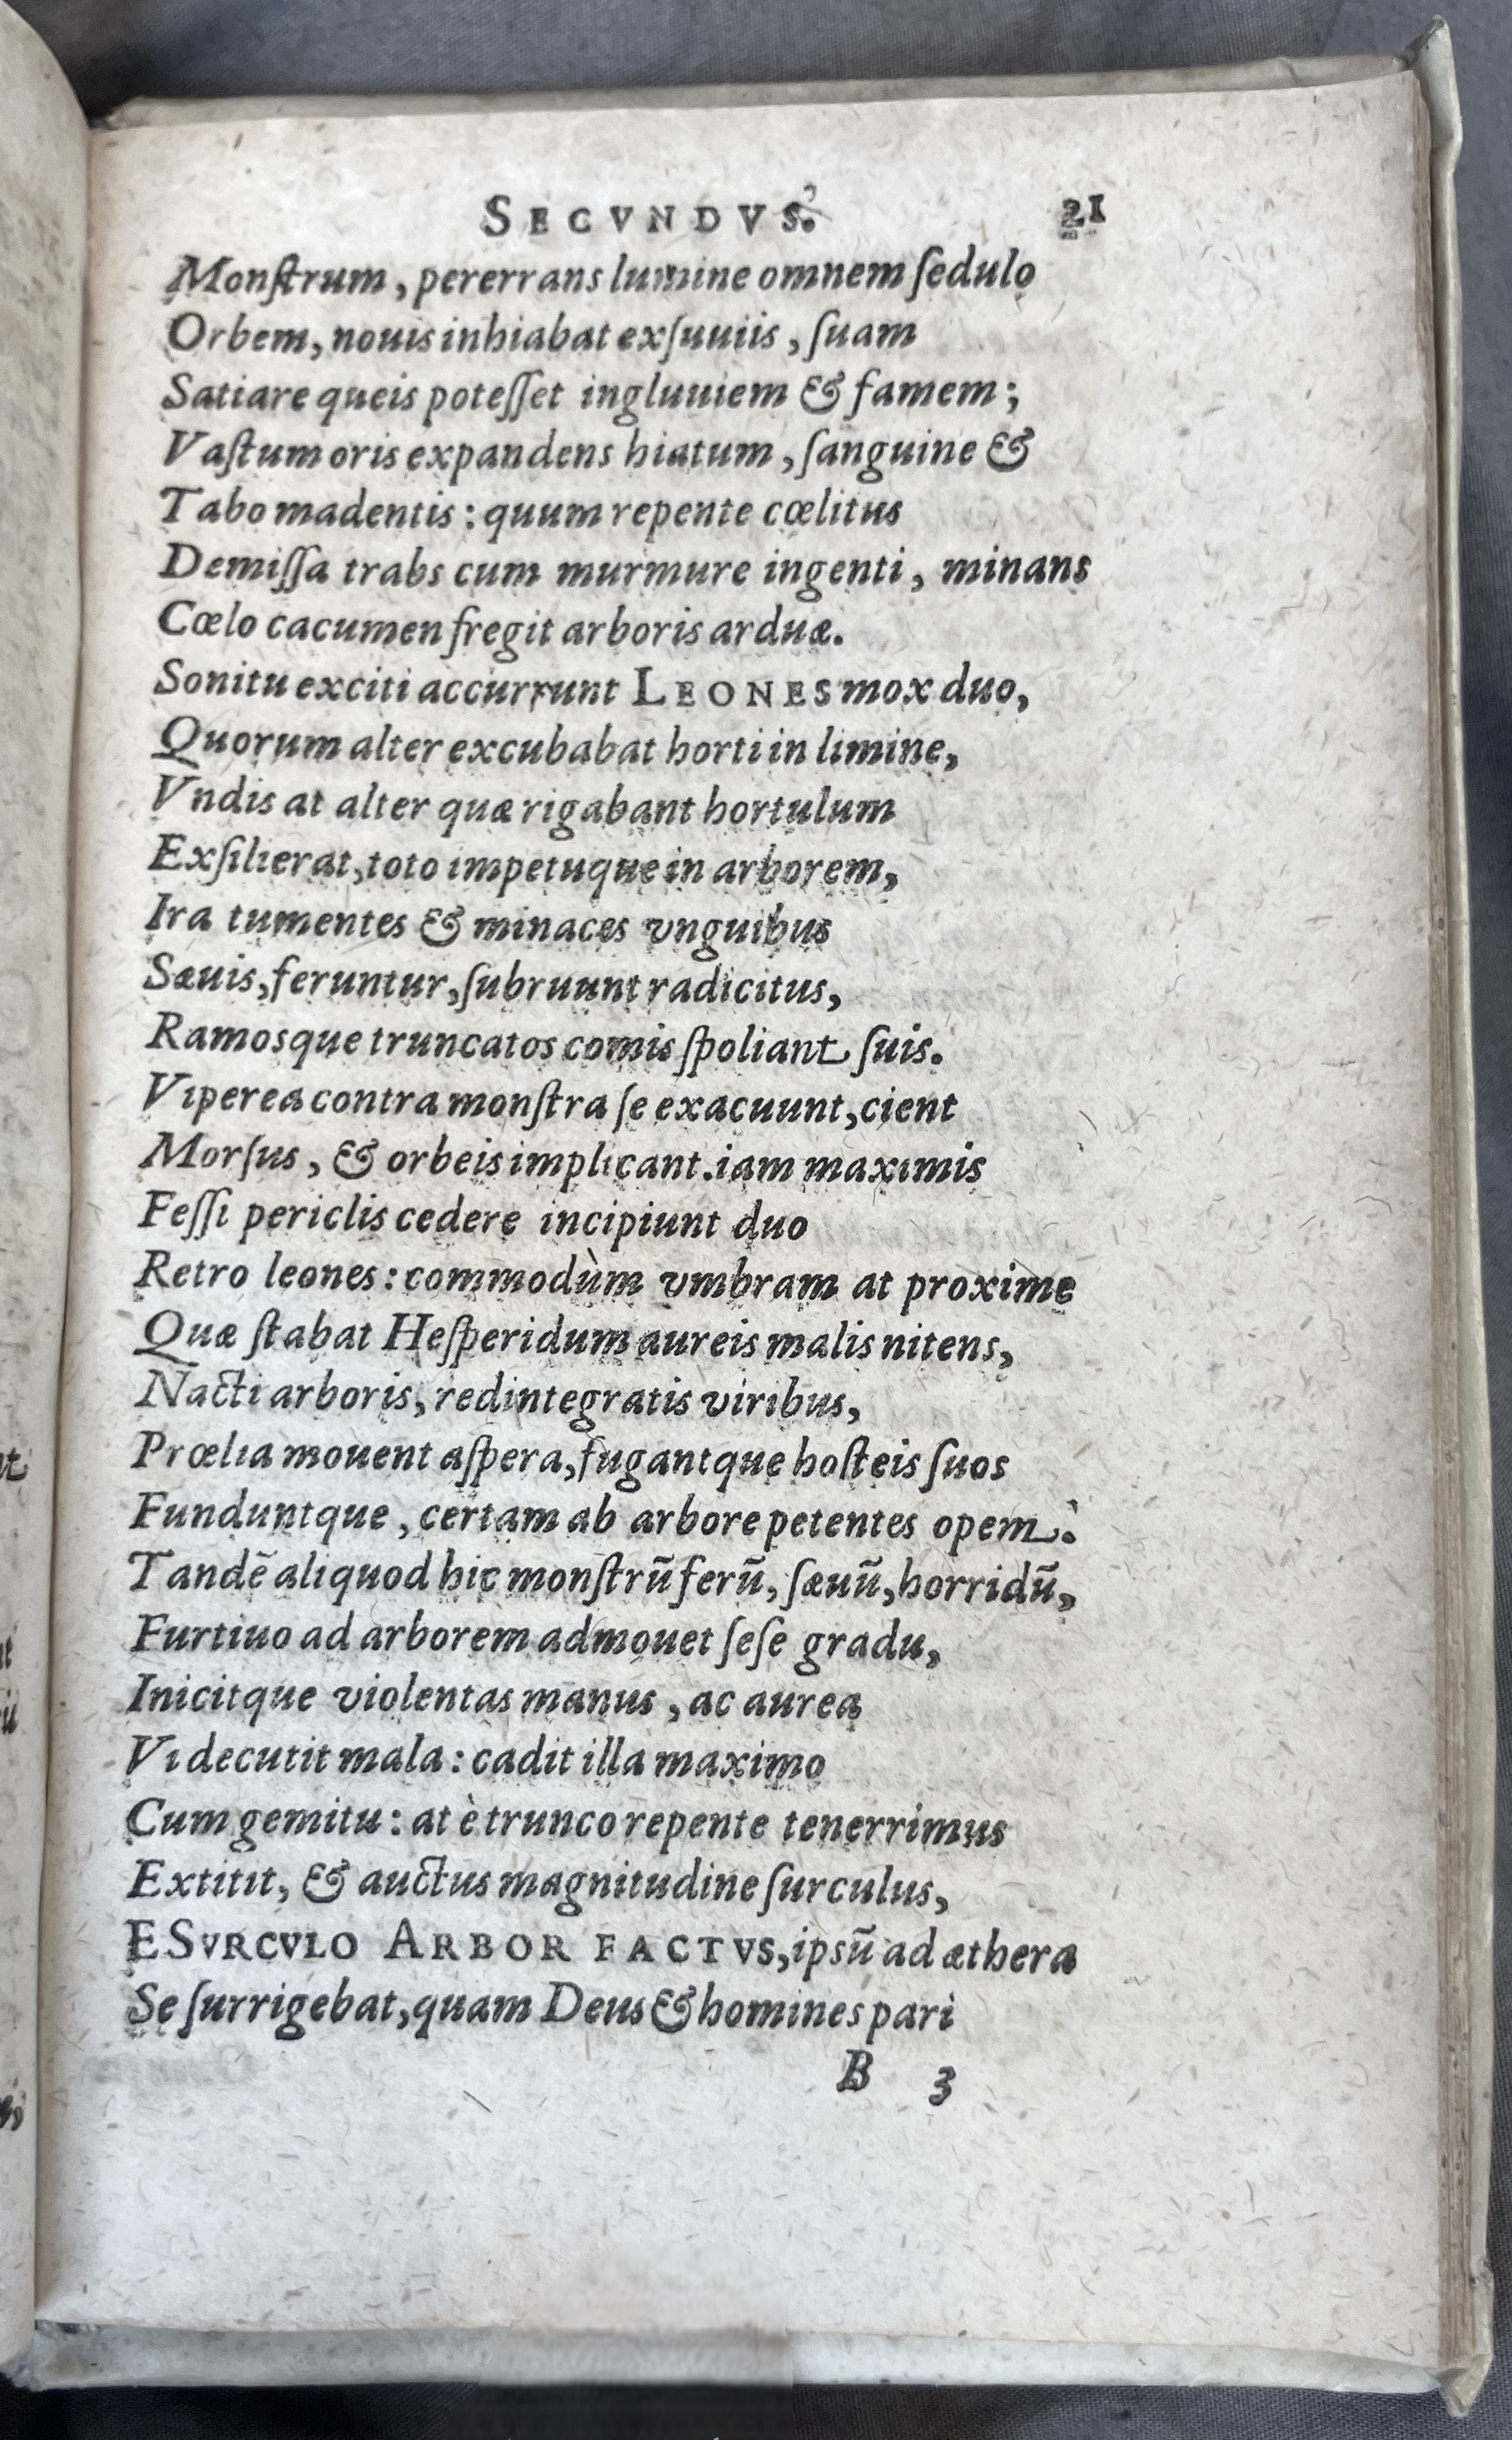 SECVNDVS. 21
Monſtrum, pererrans lumine omnem ſedulo
Orbem, nouis inhiabat exſuuiis, ſuam
Satiare queis poteſſet ingluuiem & famem;
Vaſtum oris expandens hiatum, ſanguine &
Tabo madentis: quum repente cœlitus
Demiſſa trabs cum murmure ingenti, minans
Cœlo cacumen fregit arboris arduæ.
Sonitu exciti accurrunt LEONES mox duo,
Quorum alter excubabat horti in limine,
Vndis at alter quæ rigabant hortulum
Exſilierat, toto impetuque in arborem,
Ira tumentes & minaces vnguibus
Sæuis, feruntur, ſubruunt radicitus,
Ramosque truncatos comis ſpoliant ſuis.
Viperea contra monſtra ſe exacuunt, cient
Morſus, & orbeis implicant. iam maximis
Feſſi periclis cedere incipiunt duo
Retro leones: commodùm vmbram at proxime
Quæ ſtabat Heſperidum aureis malis nitens,
Nacti arboris, redintegratis viribus,
Prœlia mouent aſpera, fugantque hoſteis ſuos
Funduntque, certam ab arbore petentes opem.
Tandẽ aliquod hic monſtrũ ferũ, ſæuũ, horridũ,
Furtiuo ad arborem admouet ſeſe gradu,
Inicitque violentas manus, ac aurea
Vi decutit mala: cadit illa maximo
Cum gemitu: at è trunco repente tenerrimus
Extitit, & auctus magnitudine ſurculus,
E SVRCVLO ARBOR FACTVS, ipsũ ad æthera
Se ſurrigebat, quam Deus & homines pari
B 3